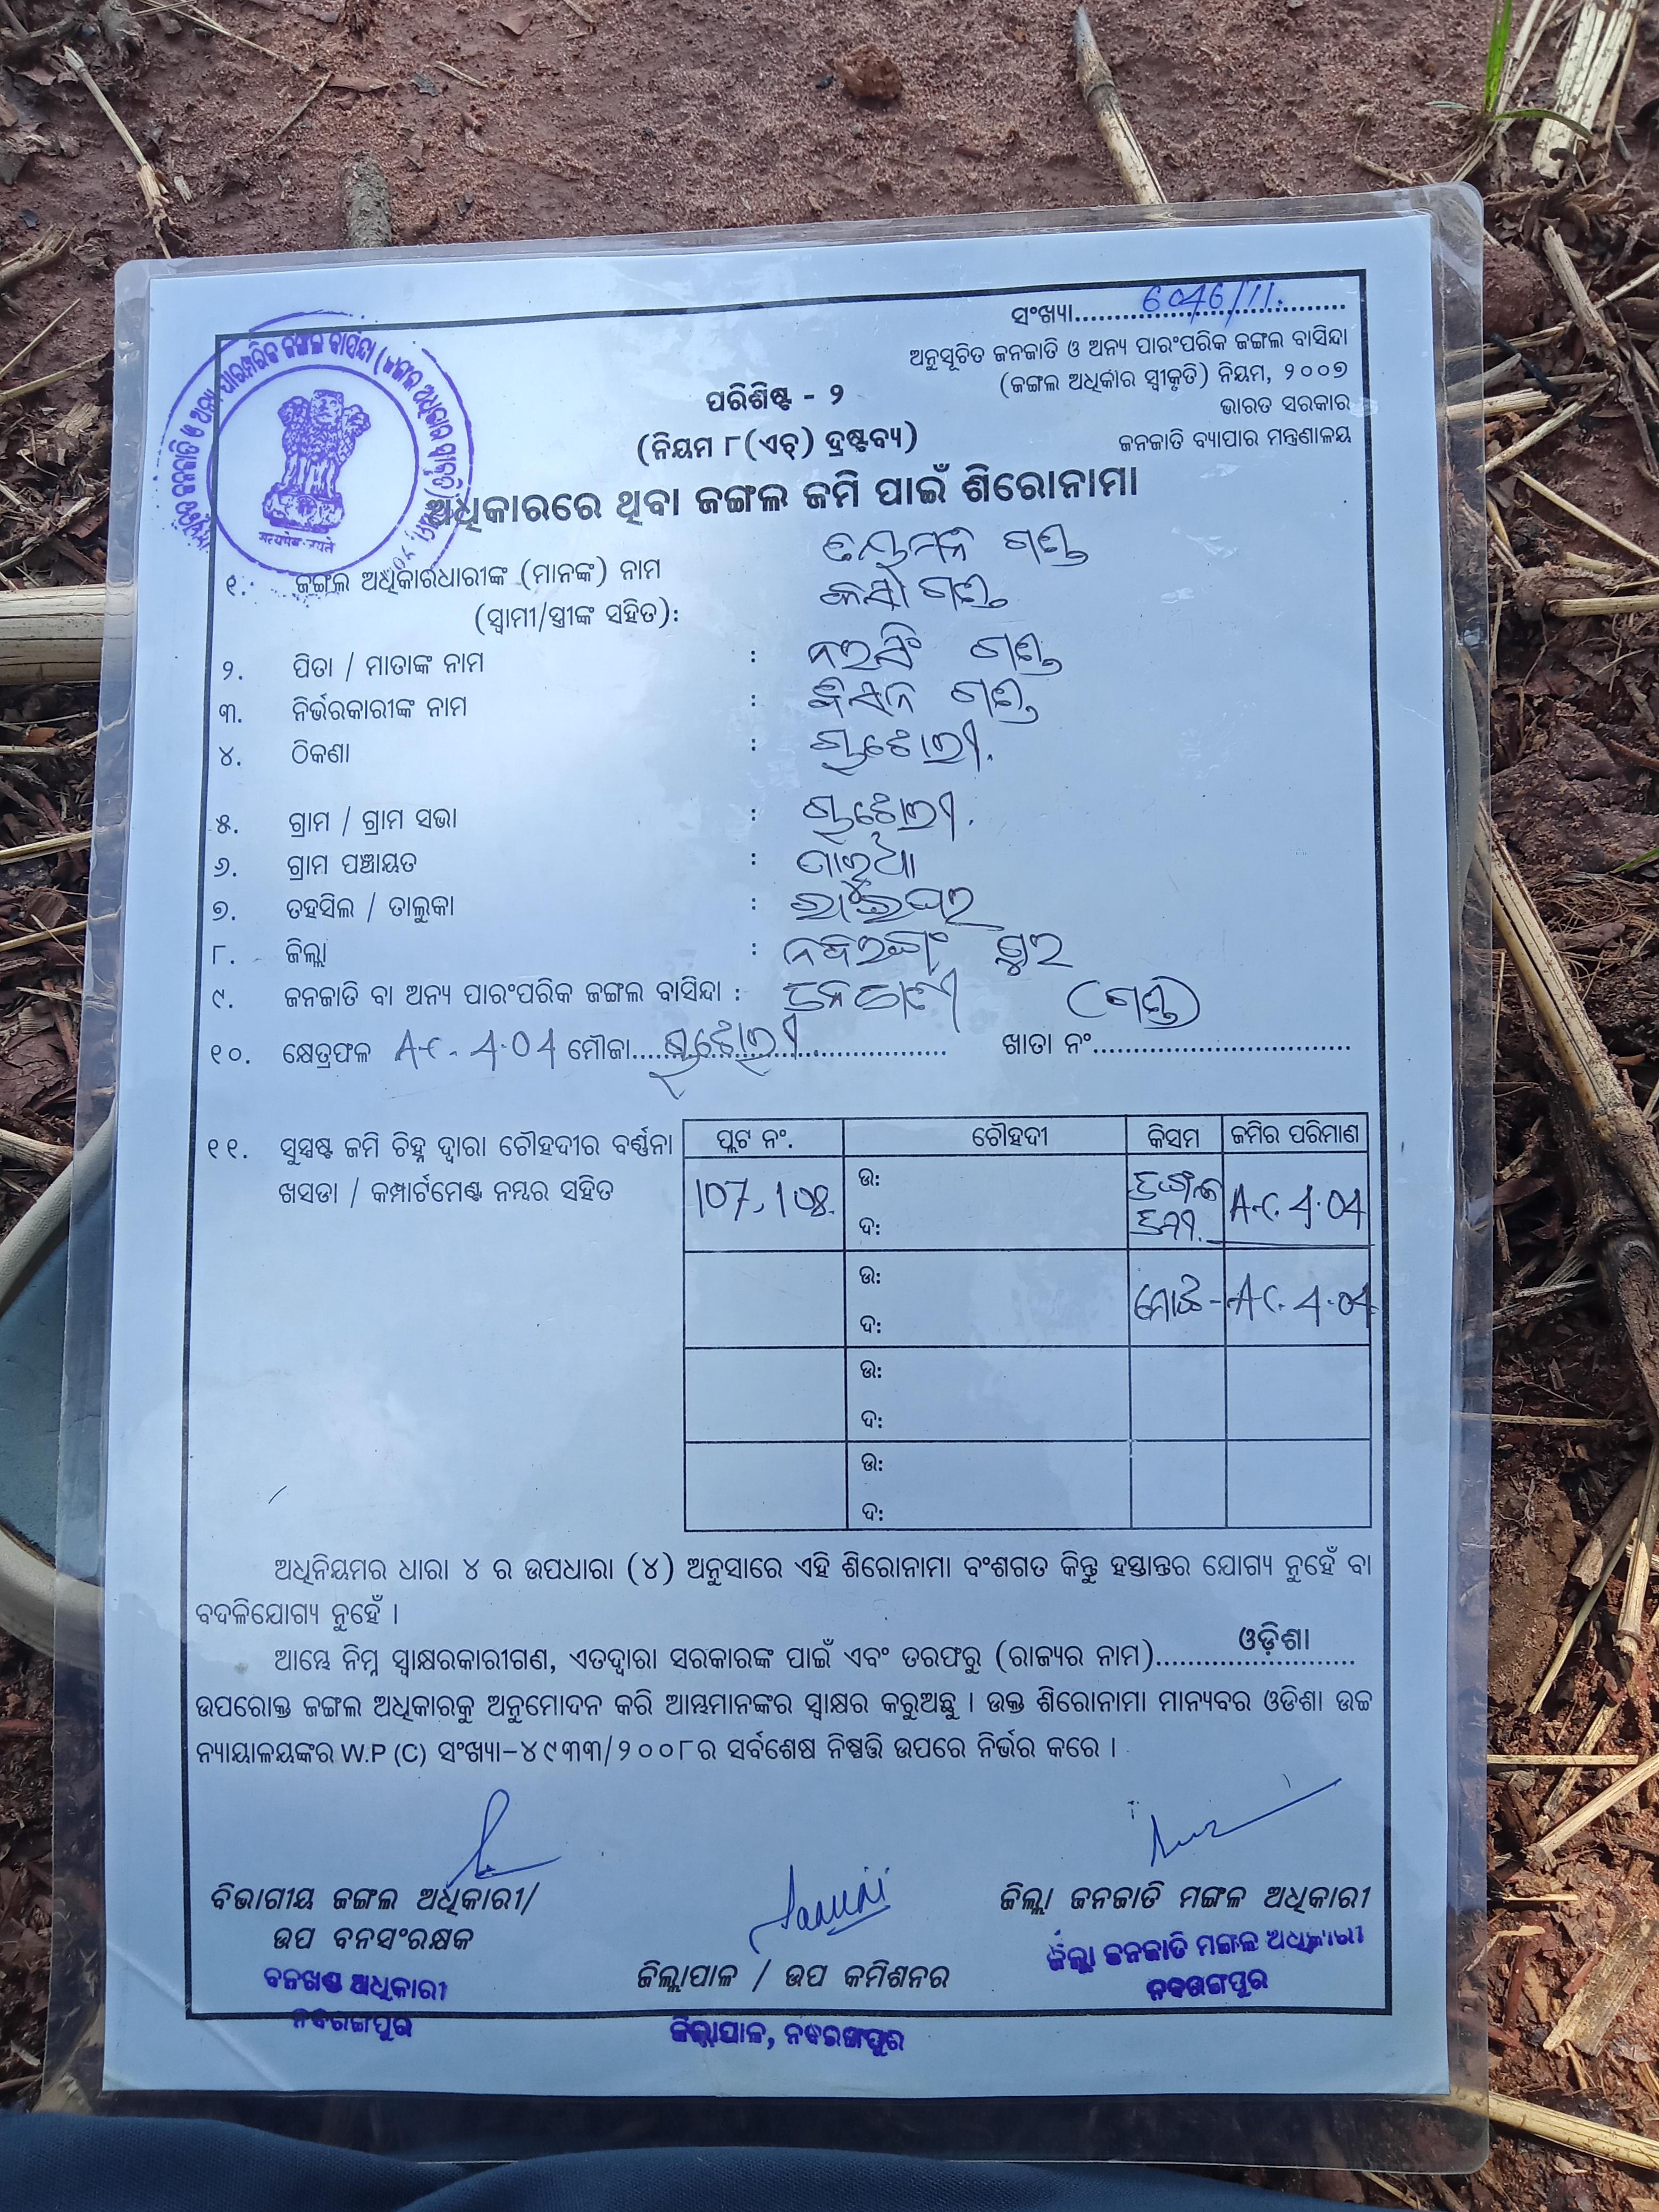 ସଂଖ୍ୟା.................................. 6046/11.
ଅନୁସୂଚିତ ଜନଜାତି ଓ ଅନ୍ୟ ପାରଂପରିକ ଜଙ୍ଗଲ ବାସିନ୍ଦା
(ଜଙ୍ଗଲ ଅଧିର୍କାର ସ୍ୱୀକୃତି) ନିୟମ, ୨୦୦୭
ଭାରତ ସରକାର
ଜନଜାତି ବ୍ୟାପାର ମନ୍ତ୍ରଣାଳୟ
ପରିଶିଷ୍ଟ - ୨
(ନିୟମ ୮(ଏଚ୍) ଦ୍ରଷ୍ଟବ୍ୟ)
ଅଧିକାରରେ ଥିବା ଜଙ୍ଗଲ ଜମି ପାଇଁ ଶିରୋନାମା
୧. ଜଙ୍ଗଲ ଅଧିକାରଧାରୀଙ୍କ (ମାନଙ୍କ) ନାମ ଗଣ୍ଡ
(ସ୍ୱାମୀ/ସ୍ତ୍ରୀଙ୍କ ସହିତ): ଗଣ୍ଡ
୨. ପିତା / ମାତାଙ୍କ ନାମ : ନରସିଂ ଗଣ୍ଡ
୩. ନିର୍ଭରକାରୀଙ୍କ ନାମ : ଗଣ୍ଡ
୪. ଠିକଣା :
୫. ଗ୍ରାମ / ଗ୍ରାମ ସଭା :
୬. ଗ୍ରାମ ପଞ୍ଚାୟତ :
୭. ତହସିଲ / ତାଲୁକା : ରାଇଘର
୮. ଜିଲ୍ଲା : ନବରଙ୍ଗପୁର
୯. ଜନଜାତି ବା ଅନ୍ୟ ପାରଂପରିକ ଜଙ୍ଗଲ ବାସିନ୍ଦା : ଜନଜାତୀ (ଗଣ୍ଡ)
୧୦. କ୍ଷେତ୍ରଫଳ A-C. 4.04 ମୌଜା....................................... ଖାତା ନଂ................................
୧୧. ସୁସ୍ପଷ୍ଟ ଜମି ଚିହ୍ନ ଦ୍ୱାରା ଚୌହଦୀର ବର୍ଣ୍ଣନା
ଖସଡା / କମ୍ପାର୍ଟମେଣ୍ଟ ନମ୍ବର ସହିତ
ପ୍ଲଟ ନଂ. ଚୌହଦୀ କିସମ ଜମିର ପରିମାଣ
107, 108. ଉ: ଜଙ୍ଗଲ A-C. 4.04
ଦ: ଜମି.
ଉ: ମୋଟ - AC. 4.04
ଦ:
ଉ:
ଦ:
ଉ:
ଦ:
ଅଧିନିୟମର ଧାରା ୪ ର ଉପଧାରା (୪) ଅନୁସାରେ ଏହି ଶିରୋନାମା ବଂଶଗତ କିନ୍ତୁ ହସ୍ତାନ୍ତର ଯୋଗ୍ୟ ନୁହେଁ ବା
ବଦଳିଯୋଗ୍ୟ ନୁହେଁ ।
ଆମ୍ଭେ ନିମ୍ନ ସ୍ୱାକ୍ଷରକାରୀଗଣ, ଏତଦ୍ୱାରା ସରକାରଙ୍କ ପାଇଁ ଏବଂ ତରଫରୁ (ରାଜ୍ୟର ନାମ)......................... ଓଡ଼ିଶା
ଉପରୋକ୍ତ ଜଙ୍ଗଲ ଅଧିକାରକୁ ଅନୁମୋଦନ କରି ଆମ୍ଭମାନଙ୍କର ସ୍ୱାକ୍ଷର କରୁଅଛୁ । ଉକ୍ତ ଶିରୋନାମା ମାନ୍ୟବର ଓଡିଶା ଉଚ୍ଚ
ନ୍ୟାୟାଳୟଙ୍କର W.P (C) ସଂଖ୍ୟା-୪୯୩୩/୨୦୦୮ର ସର୍ବଶେଷ ନିଷ୍ପତ୍ତି ଉପରେ ନିର୍ଭର କରେ ।
ବିଭାଗୀୟ ଜଙ୍ଗଲ ଅଧିକାରୀ/
ଉପ ବନସଂରକ୍ଷକ
ବନଖଣ୍ଡ ଅଧିକାରୀ
ନବରଙ୍ଗପୁର
ଜିଲ୍ଲାପାଳ / ଉପ କମିଶନର
ଜିଲ୍ଲାପାଳ, ନବରଙ୍ଗପୁର
ଜିଲ୍ଲା ଜନଜାତି ମଙ୍ଗଳ ଅଧିକାରୀ
ଜିଲ୍ଲା ଜନଜାତି ମଙ୍ଗଳ ଅଧିକାରୀ
ନବରଙ୍ଗପୁର